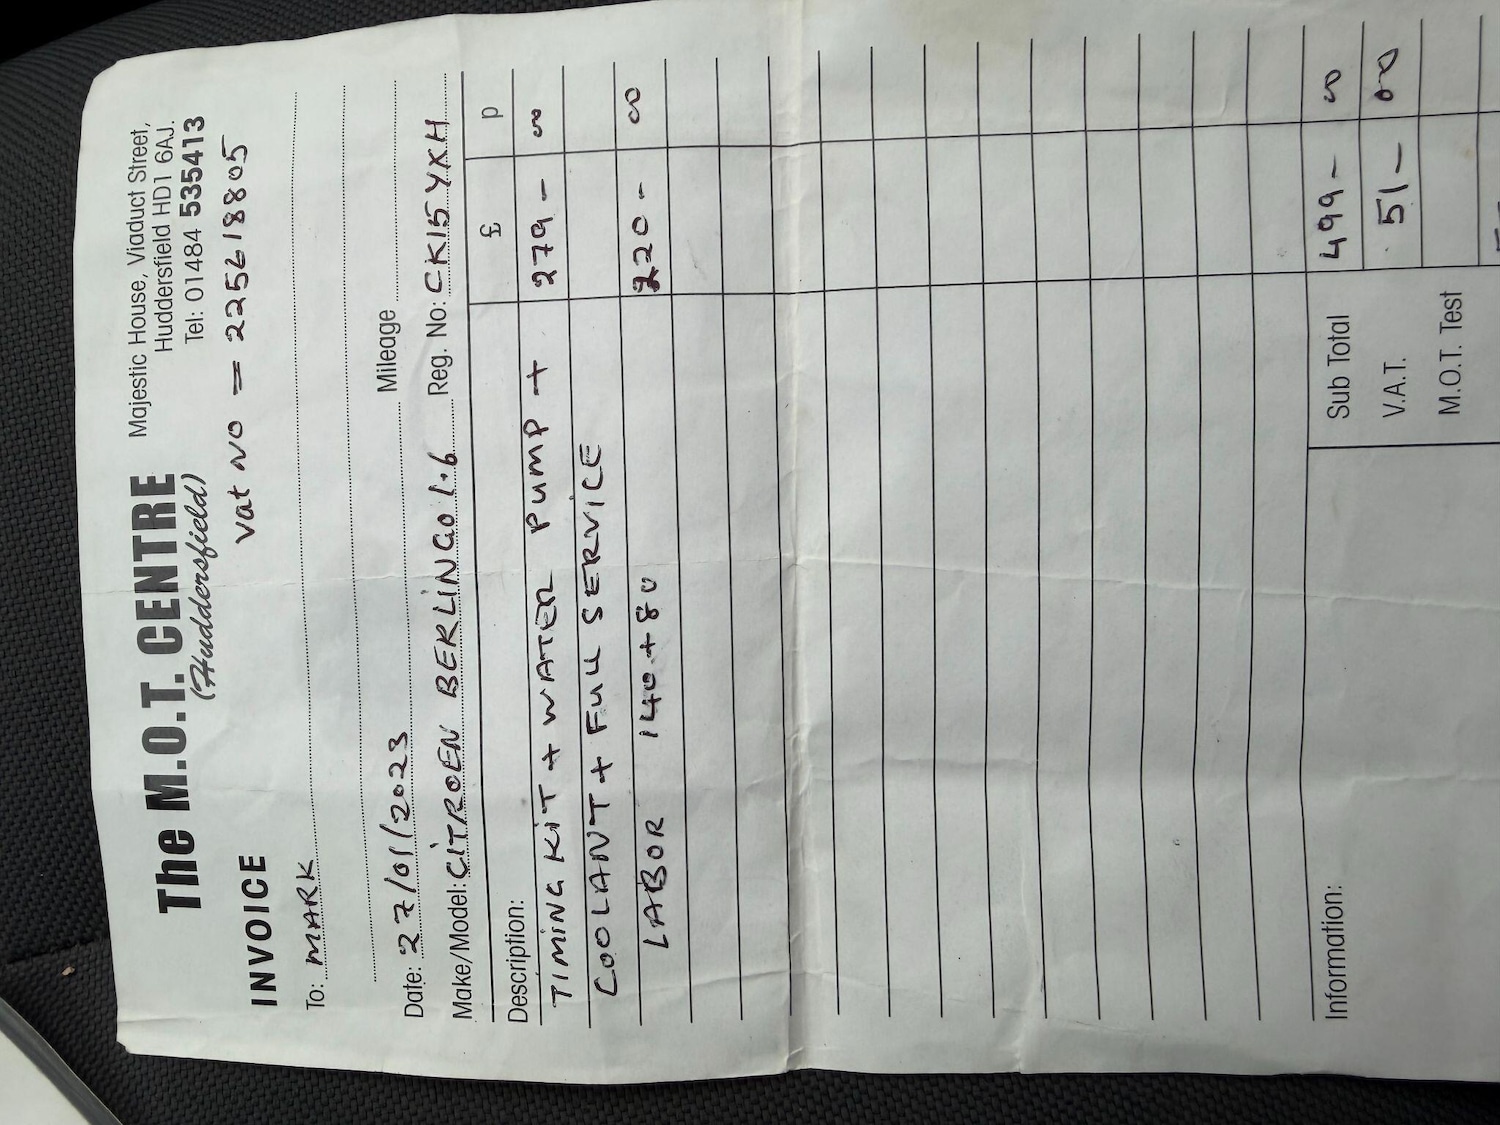 The M.O.T. CENTRE
(Huddersfield)
Majestic House, Viaduct Street,
Huddersfield HD1 6AJ.
Tel: 01484 535413
Vat NO = 225618805
INVOICE
To: MARK
Date: 27/01/2023 Mileage
Make/Model: CITROEN BERLINGO 1.6 Reg. No: CK15 YXH
Description: £ p
TIMING KIT + WATER PUMP + 279 - 00
COOLANT + FULL SERVICE
LABOR 140 + 80 220 - 00
Information: Sub Total 499 - 00
V.A.T. 51 - 00
M.O.T. Test